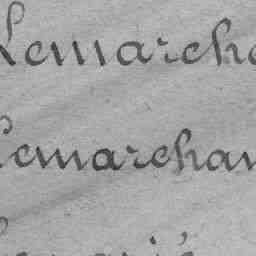 Lemarcha
Lemarchan